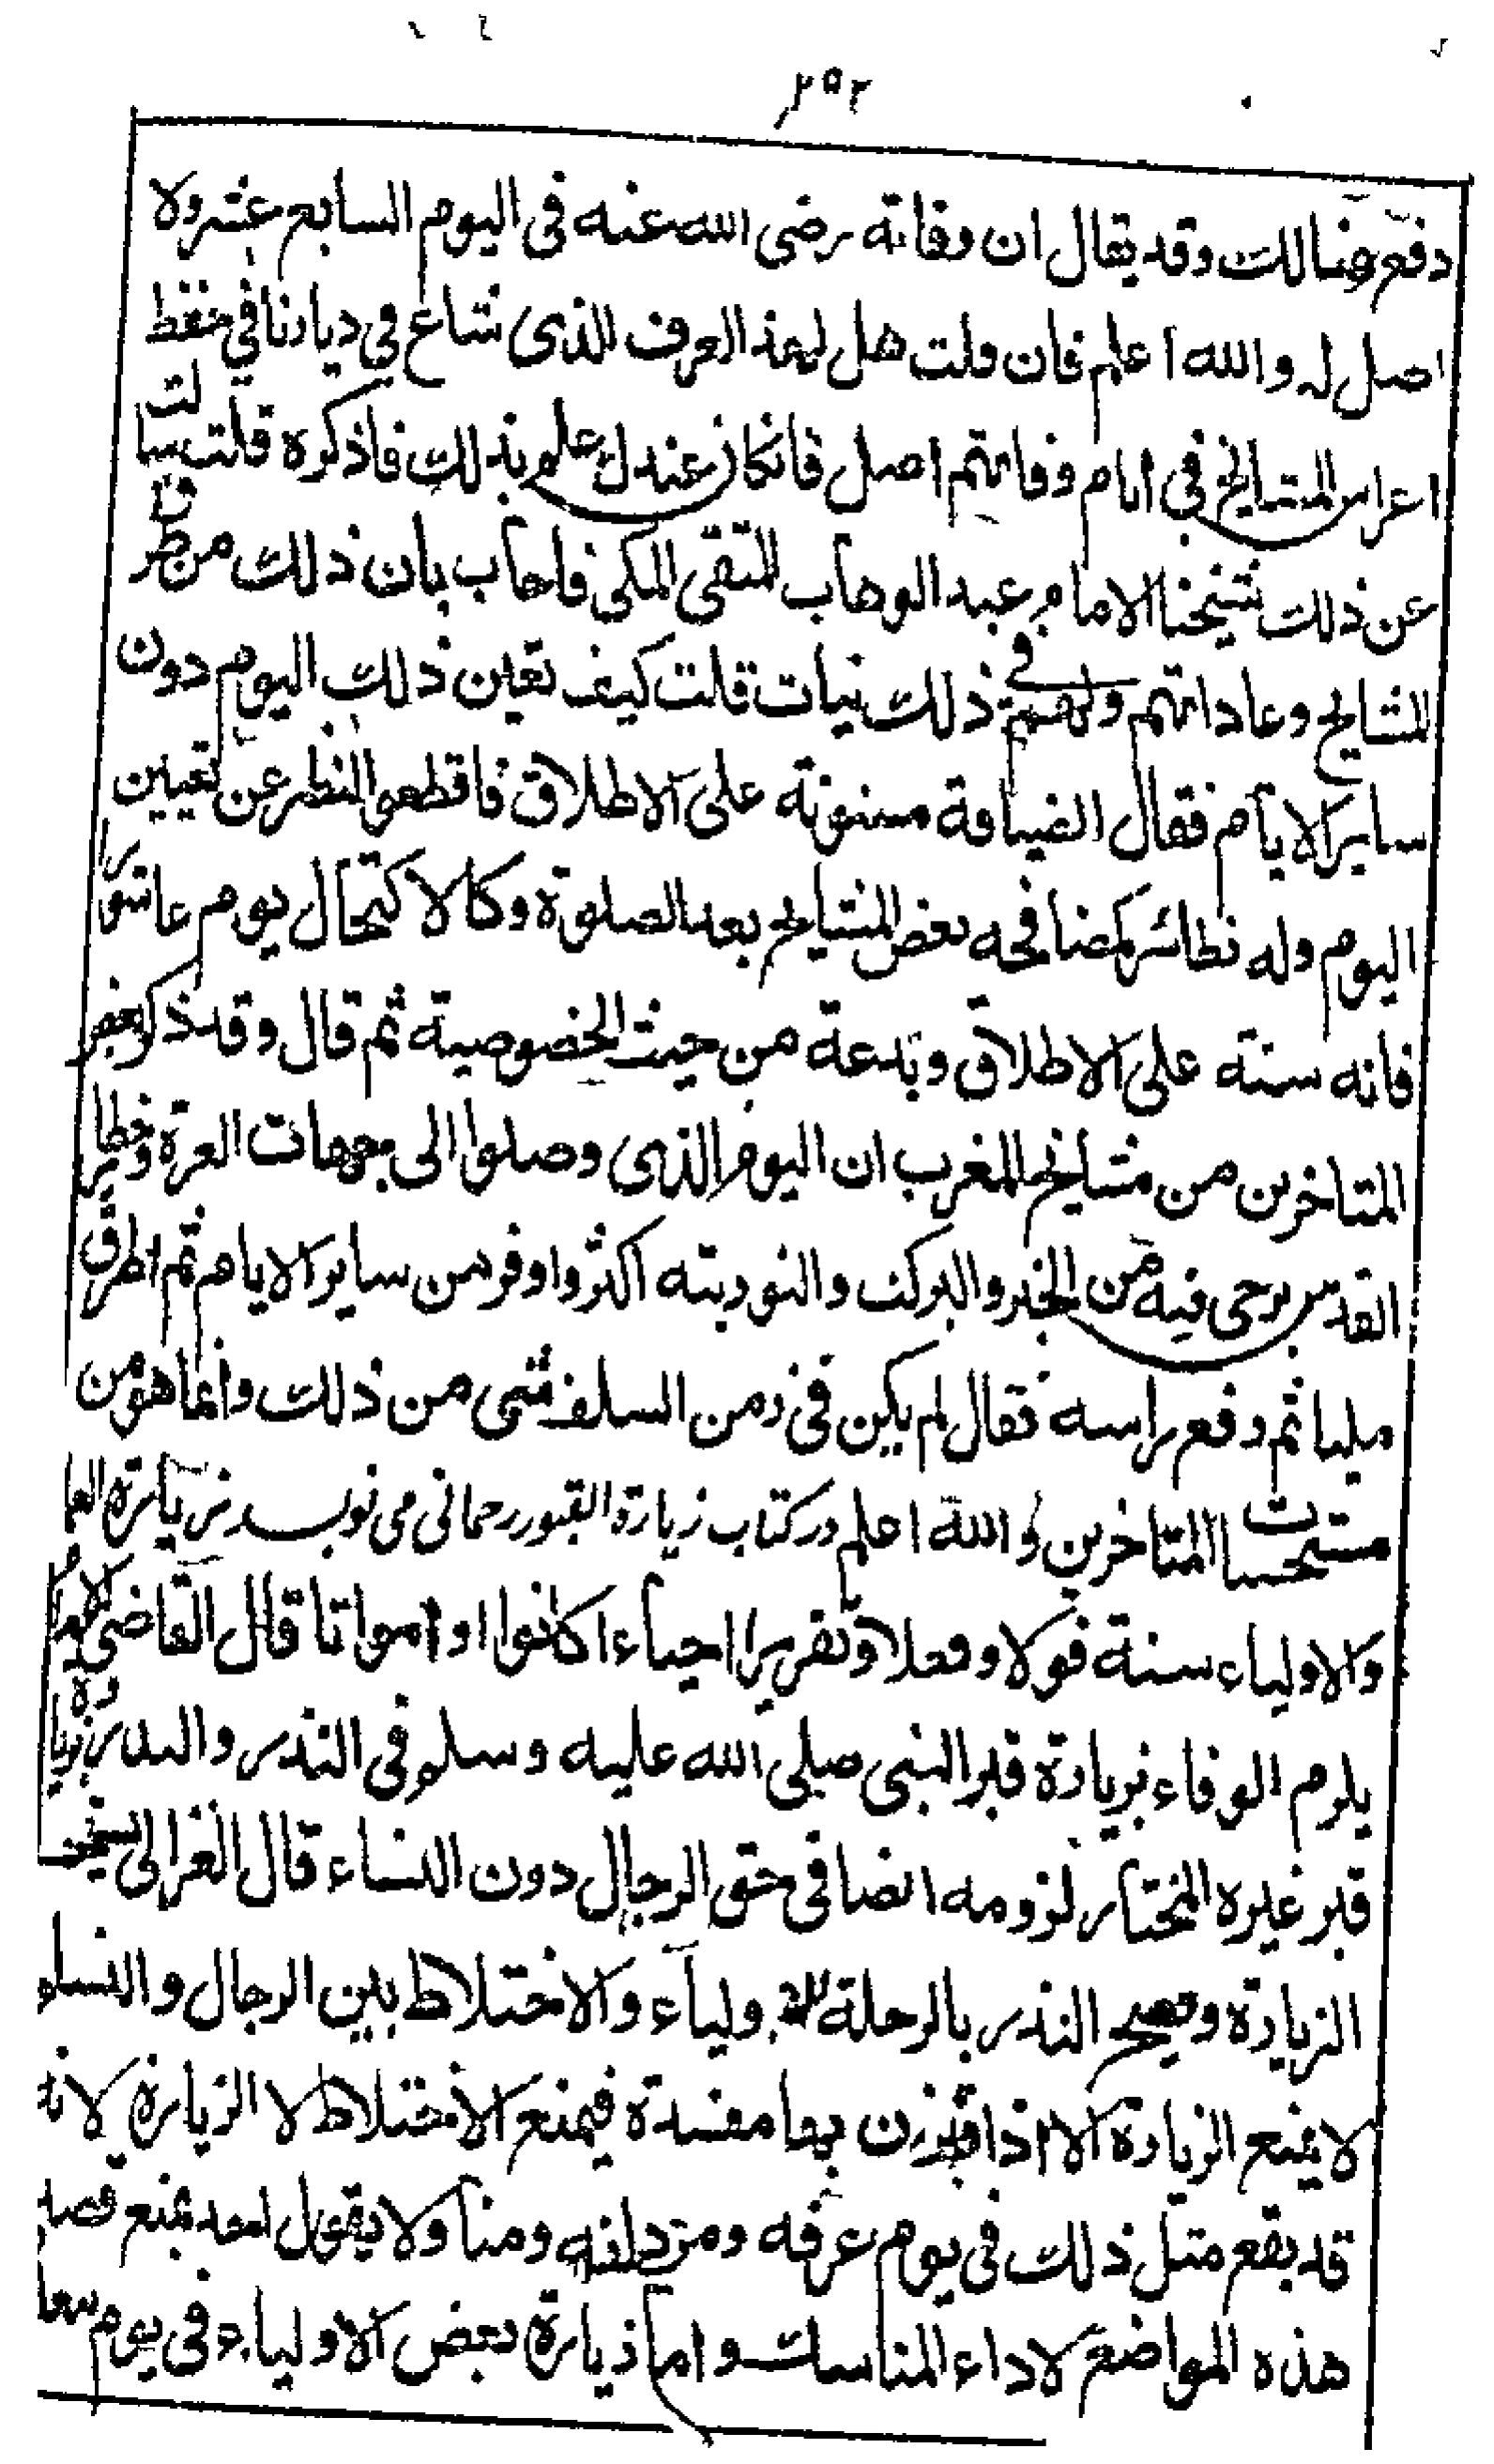 ٢٥٢
دفع هنالك وقد يقال ان وفاته رضى الله عنه فى اليوم السابع عشر ولا
اصل له والله اعلم فان قلت هل لهذ العرف الذى شاع في ديارنا في حفظ
اعراس المشايخ في ايام وفاتهم اصل فانكان عندك علم بذلك فاذكره قلت سالت
عن ذلك شيخنا الامام عبد الوهاب المتقى المكى فاجاب بان ذلك من طرق
المشايخ وعاداتهم ولهم في ذلك نيات قلت كيف تعين ذلك اليوم دون
ساير الايام فقال الضيافة مسنونة على الاطلاق فاقطعوا النظر عن تعيين
اليوم وله نظائر كمصافحه بعض المشايخ بعد الصلوة وكالاكتحال يوم عاشورا
فانه سنة على الاطلاق وبدعة من حيث الخصوصية ثم قال وقد ذكر بعض
المتاخرين من مشايخ المغرب ان اليوم الذى وصلوا الى جهات العزة وحظاير
القدس يرجى فيه من الخير والبركت والنوريته اكثر واوفر من ساير الايام ثم اطرق
مليا ثم رفع راسه فقال لم يكن في زمن السلف شى من ذلك وانما هو من
مستحسات المتاخرين والله اعلم در كتاب زيارة القبور رحمانى مى نويسد زيارة العلما
والاولياء سنة قولا وفعلا وتقريرا احياء اكانوا او امواتا قال القاضى
يلزم الوفاء بزيارة قبر النبى صلى الله عليه وسلم فى النذر والنذر بزيارة
قبر غيره المختار لزومه ايضا فى حق الرجال دون النساء قال الغزالى يستحب
الزيارة ويصح النذر بالرحلة للاولياء والاختلاط بين الرجال والنساء
لا يمنع الزيارة الا اذا اقترن بها مفسدة فيمنع الاختلاط لا الزيارة لانه
قد يقع مثل ذلك فى يوم عرفه ومزدلفه ومنا ولا يقول احد بمنع قصد
هذه المواضع لاداء المناسك واما زيارة بعض الاولياء فى يوم